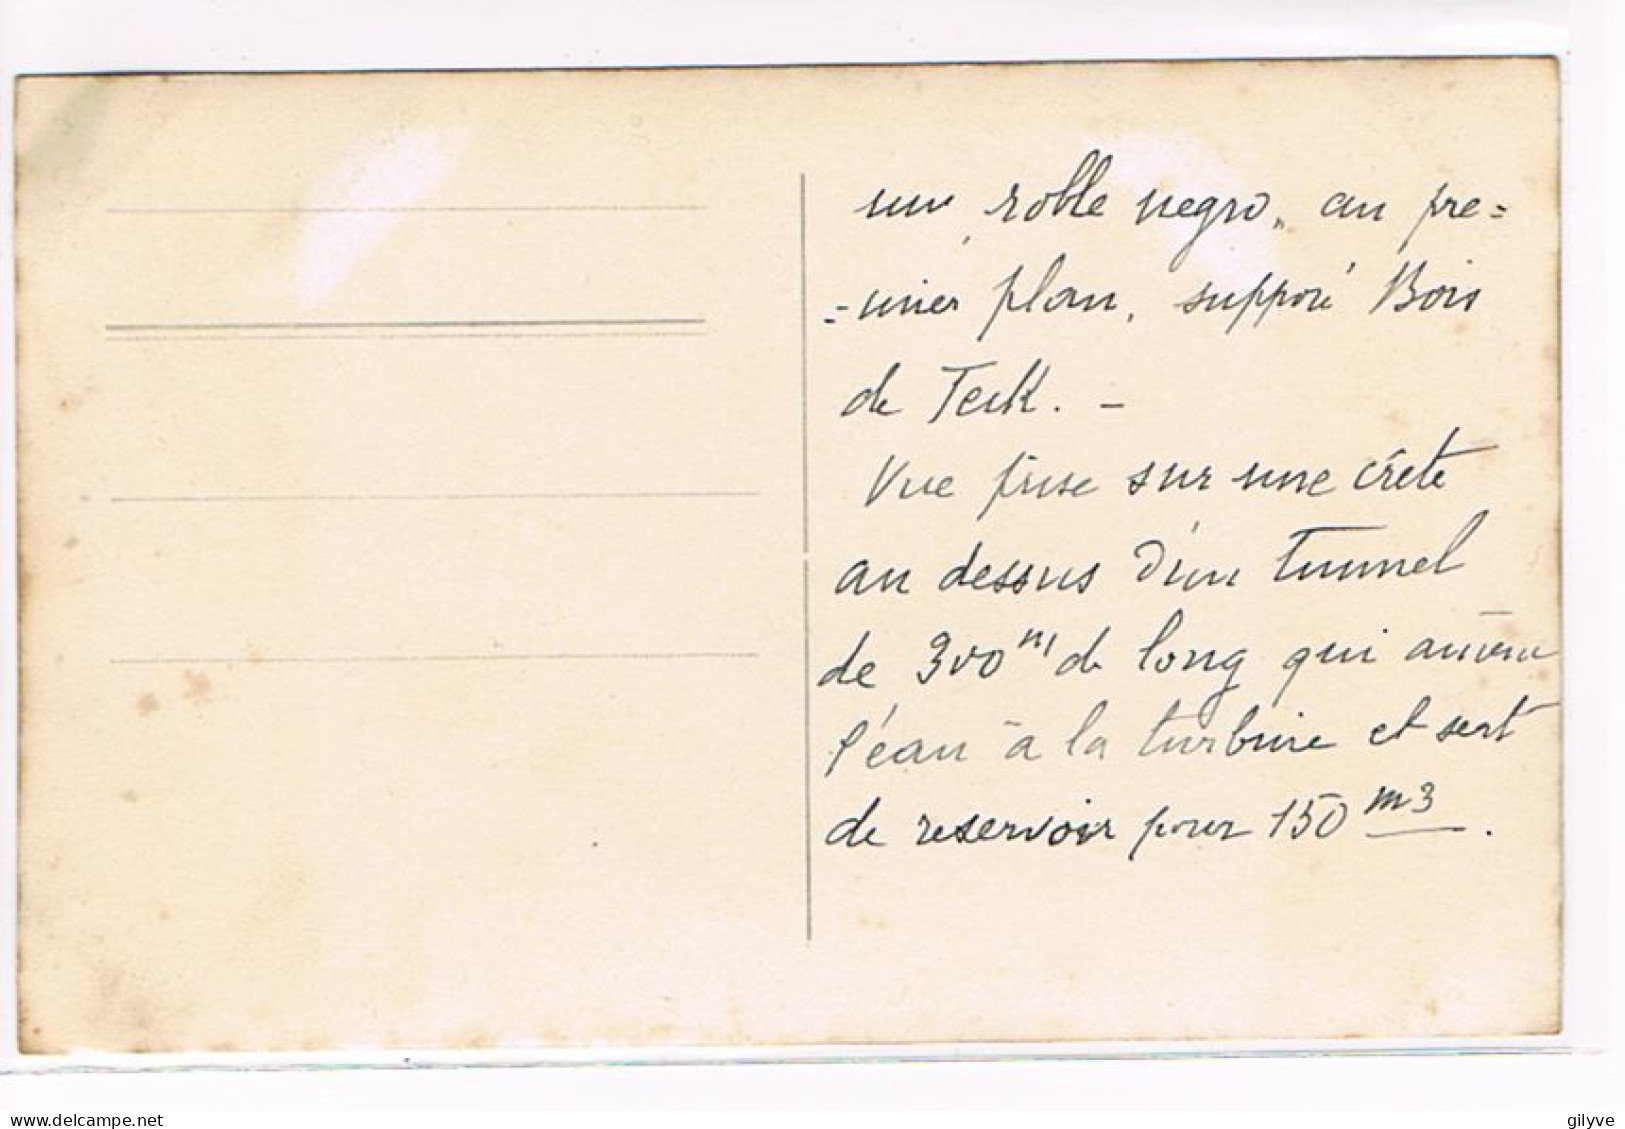 un „roble negro„ au pre=
=mier plan, supposé Bois
de Teck. —
Vue prise sur une crête
au dessus d'un tunnel
de 300m de long qui amène
l'eau à la turbine et sert
de reservoir pour 150 m3.
www.delcampe.net
gilyve